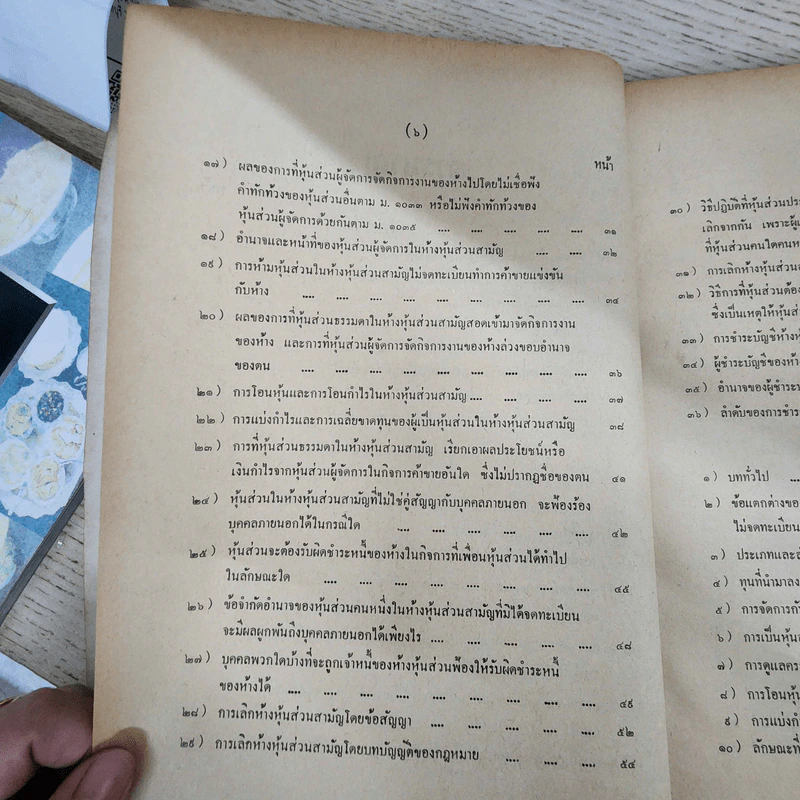 (๖)
หน้า
๑๗) ผลของการที่หุ้นส่วนผู้จัดการจัดกิจการงานของห้างไปโดยไม่เชื่อฟัง
คำทักท้วงของหุ้นส่วนอื่นตาม ม. ๑๐๓๓ หรือไม่ฟังคำทักท้วงของ
หุ้นส่วนผู้จัดการด้วยกันตาม ม. ๑๐๓๕ .... .... .... .... .... ๓๑
๑๘) อำนาจและหน้าที่ของหุ้นส่วนผู้จัดการในห้างหุ้นส่วนสามัญ .... .... ๓๒
๑๙) การห้ามหุ้นส่วนในห้างหุ้นส่วนสามัญไม่จดทะเบียนทำการค้าขายแข่งขัน
กับห้าง .... .... .... .... .... .... .... .... .... ๓๔
๒๐) ผลของการที่หุ้นส่วนธรรมดาในห้างหุ้นส่วนสามัญสอดเข้ามาจัดกิจการงาน
ของห้าง และการที่หุ้นส่วนผู้จัดการจัดกิจการงานของห้างล่วงขอบอำนาจ
ของตน .... .... .... .... .... .... .... .... .... ๓๖
๒๑) การโอนหุ้นและการโอนกำไรในห้างหุ้นส่วนสามัญ .... .... .... .... ๓๗
๒๒) การแบ่งกำไรและการเฉลี่ยขาดทุนของผู้เป็นหุ้นส่วนในห้างหุ้นส่วนสามัญ ๓๘
๒๓) การที่หุ้นส่วนธรรมดาในห้างหุ้นส่วนสามัญ เรียกเอาผลประโยชน์หรือ
เงินกำไรจากหุ้นส่วนผู้จัดการในกิจการค้าขายอันใด ซึ่งไม่ปรากฏชื่อของตน ๔๑
๒๔) หุ้นส่วนในห้างหุ้นส่วนสามัญที่ไม่ใช่คู่สัญญากับบุคคลภายนอก จะฟ้องร้อง
บุคคลภายนอกได้ในกรณีใด .... .... .... .... .... .... ๔๒
๒๕) หุ้นส่วนจะต้องรับผิดชำระหนี้ของห้างในกิจการที่เพื่อนหุ้นส่วนได้ทำไป
ในลักษณะใด .... .... .... .... .... .... .... .... ๔๕
๒๖) ข้อจำกัดอำนาจของหุ้นส่วนคนหนึ่งในห้างหุ้นส่วนสามัญที่มิได้จดทะเบียน
จะมีผลผูกพันถึงบุคคลภายนอกได้เพียงไร .... .... .... .... .... ๔๘
๒๗) บุคคลพวกใดบ้างที่จะถูกเจ้าหนี้ของห้างหุ้นส่วนฟ้องให้รับผิดชำระหนี้
ของห้างได้ .... .... .... .... .... .... .... .... .... ๔๙
๒๘) การเลิกห้างหุ้นส่วนสามัญโดยข้อสัญญา .... .... .... .... .... ๕๒
๒๙) การเลิกห้างหุ้นส่วนสามัญโดยบทบัญญัติของกฎหมาย .... .... .... ๕๔
๓๐) วิธีปฏิบัติที่หุ้นส่วนประ
เลิกจากกัน เพราะผู้
ที่หุ้นส่วนคนใดคนห
๓๑) การเลิกห้างหุ้นส่วน
๓๒) วิธีการที่หุ้นส่วนต้อง
ซึ่งเป็นเหตุให้หุ้นส่
๓๓) การชำระบัญชีห้างห
๓๔) ผู้ชำระบัญชีของห้า
๓๕) อำนาจของผู้ชำระ
๓๖) ลำดับของการชำระ
๑) บททั่วไป ....
๒) ข้อแตกต่างของ
ไม่จดทะเบียน
๓) ประเภทและ
๔) ทุนที่นำมาลง
๕) การจัดการกั
๖) การเป็นหุ้น
๗) การดูแลคร
๘) การโอนหุ้
๙) การแบ่งกำ
๑๐) ลักษณะที่